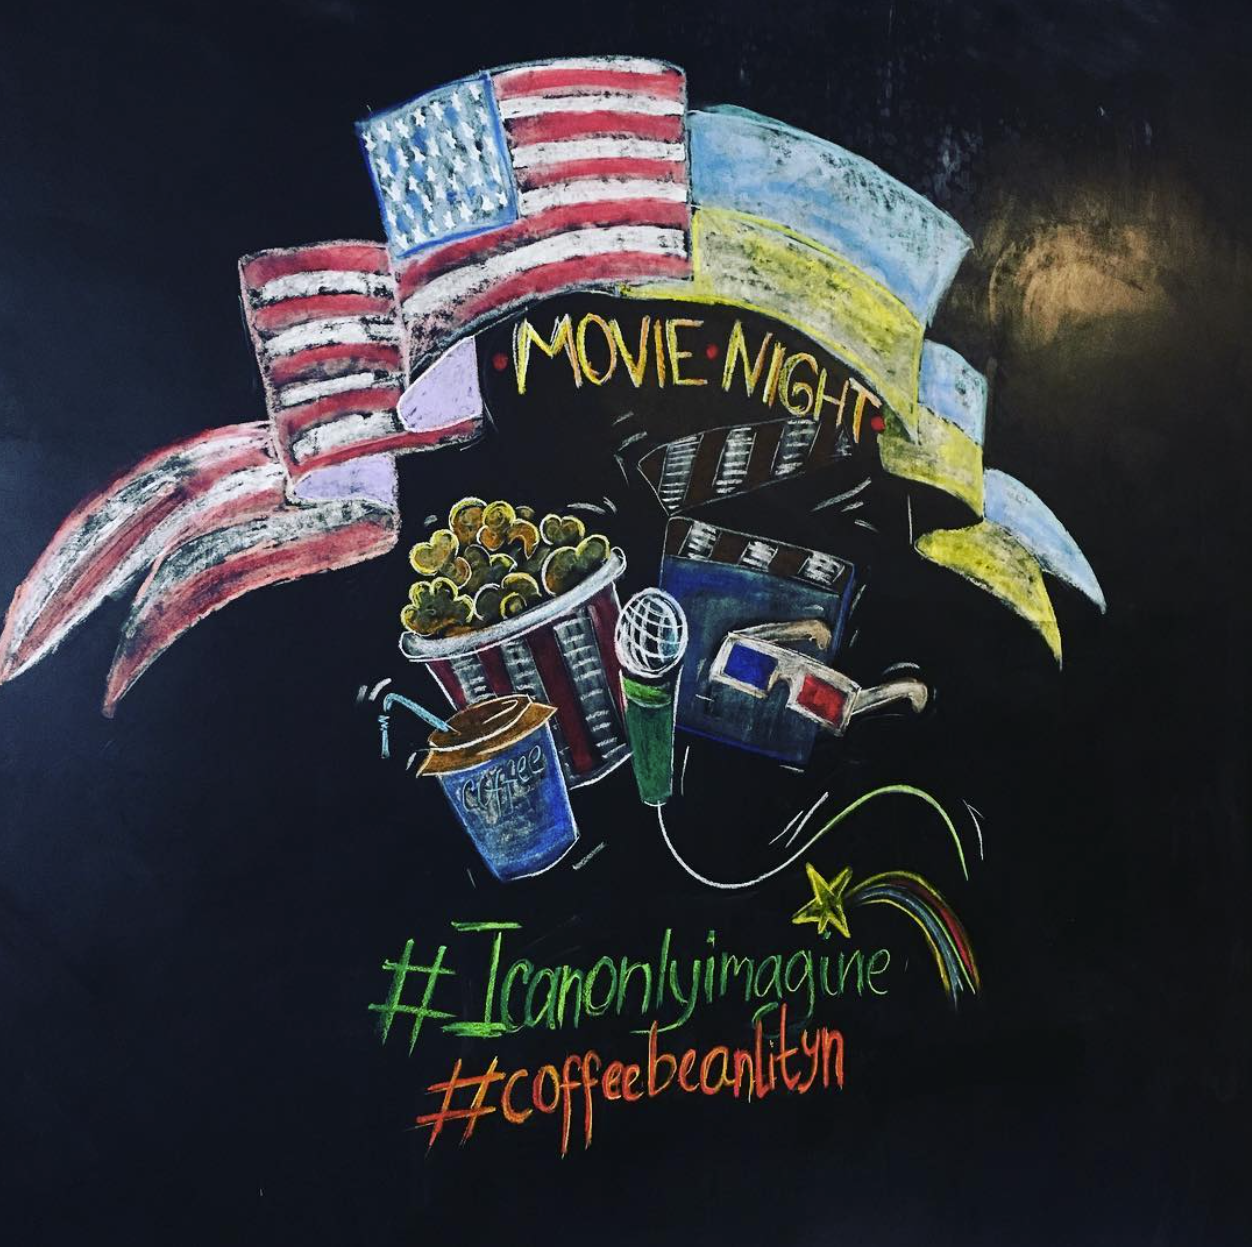 ·MOVIE·NIGHT·
coffee
#Icanonlyimagine
#coffeebeanlityn